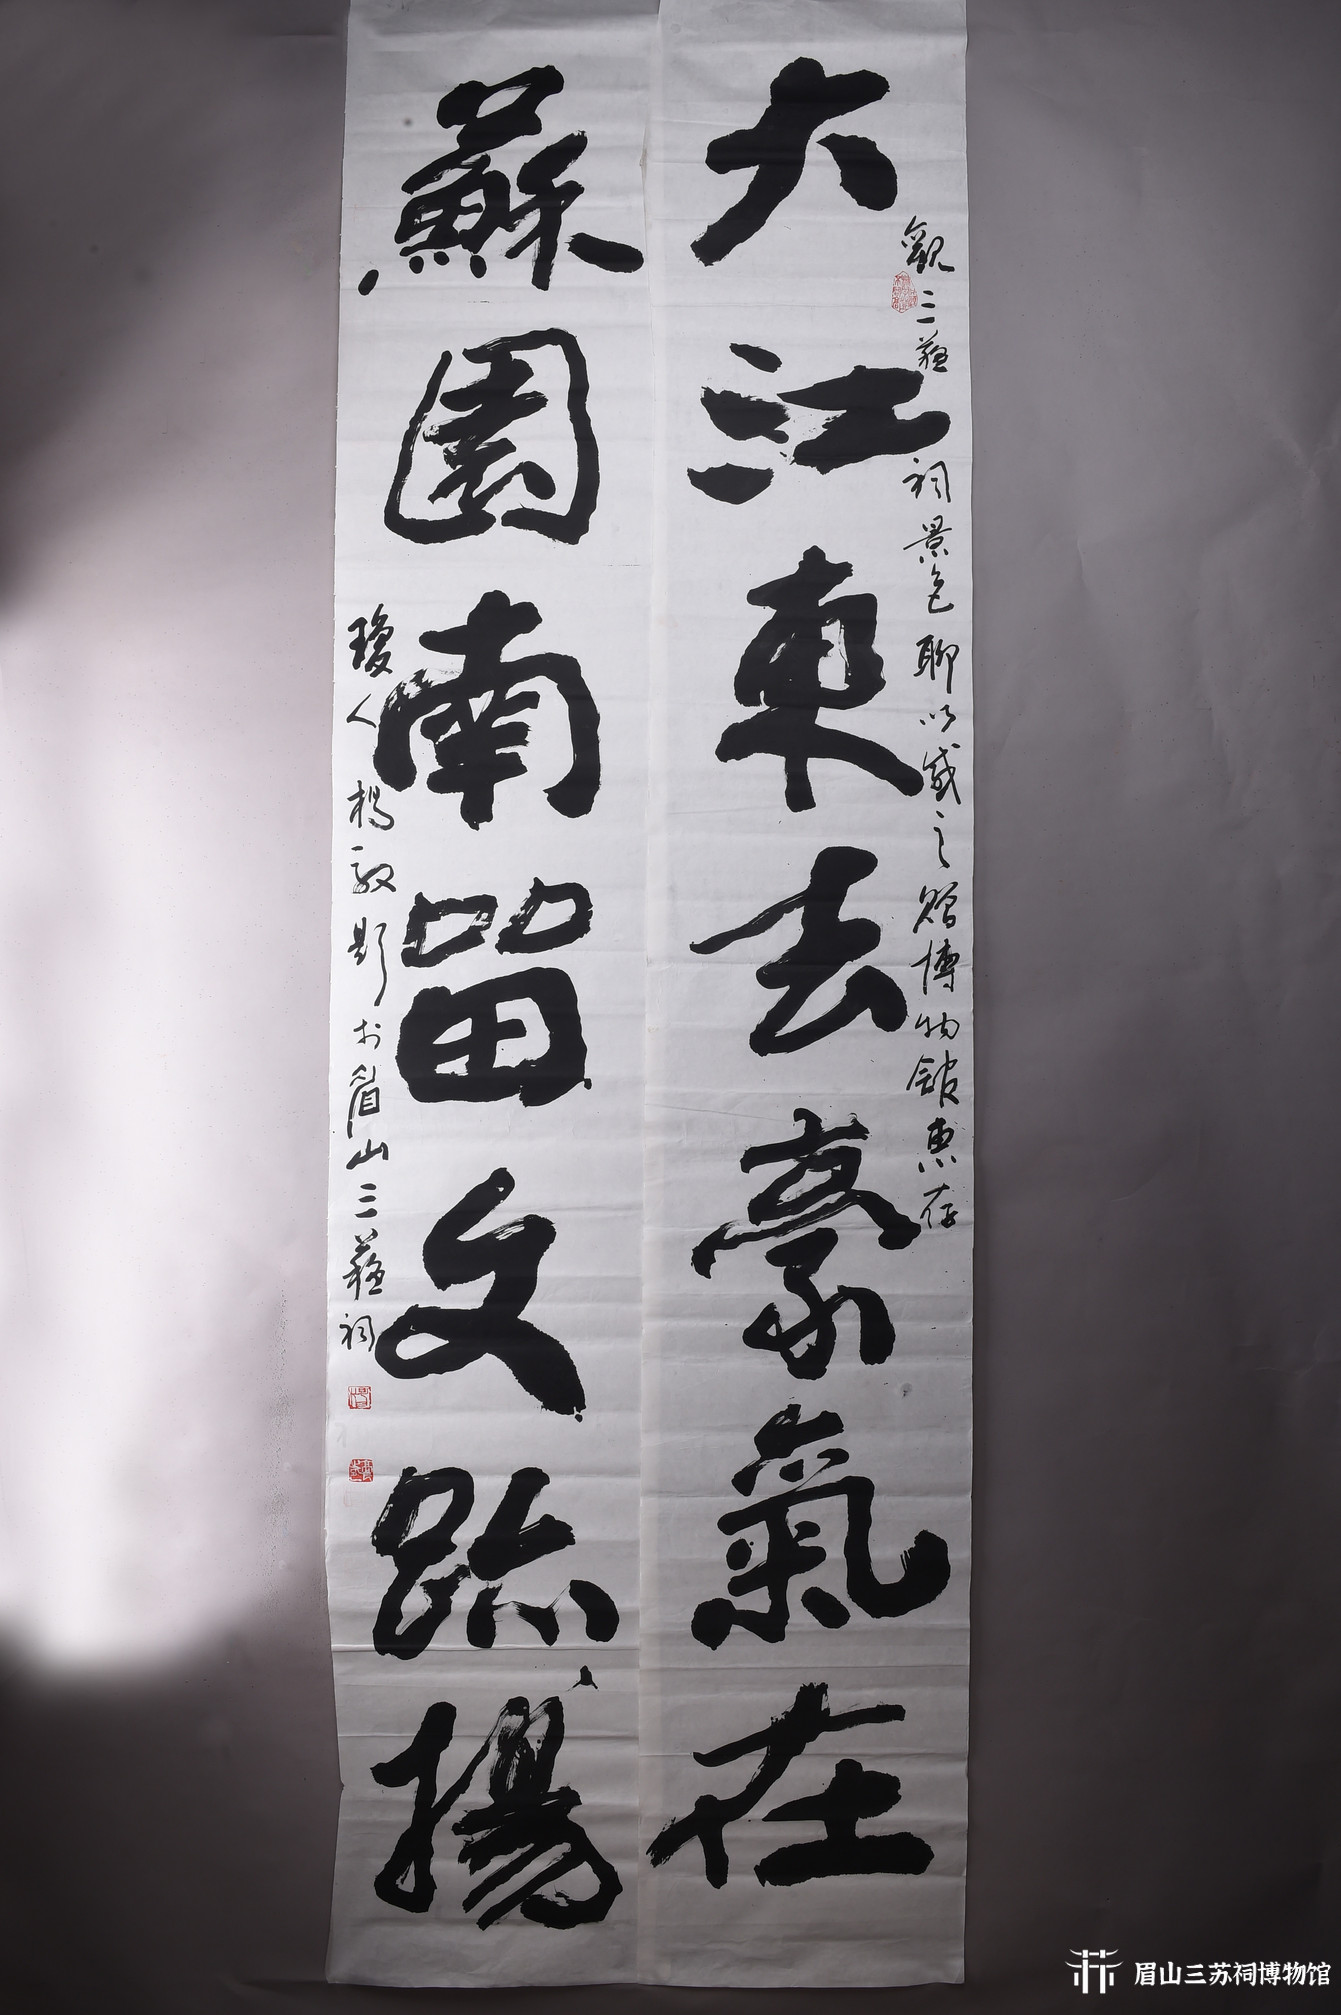 觀三蘇祠景色聊以感之贈博物館惠存
大江東去豪氣在
蘇園南留文跡揚
瓊人楊毅題於眉山三蘇祠
眉山三苏祠博物馆